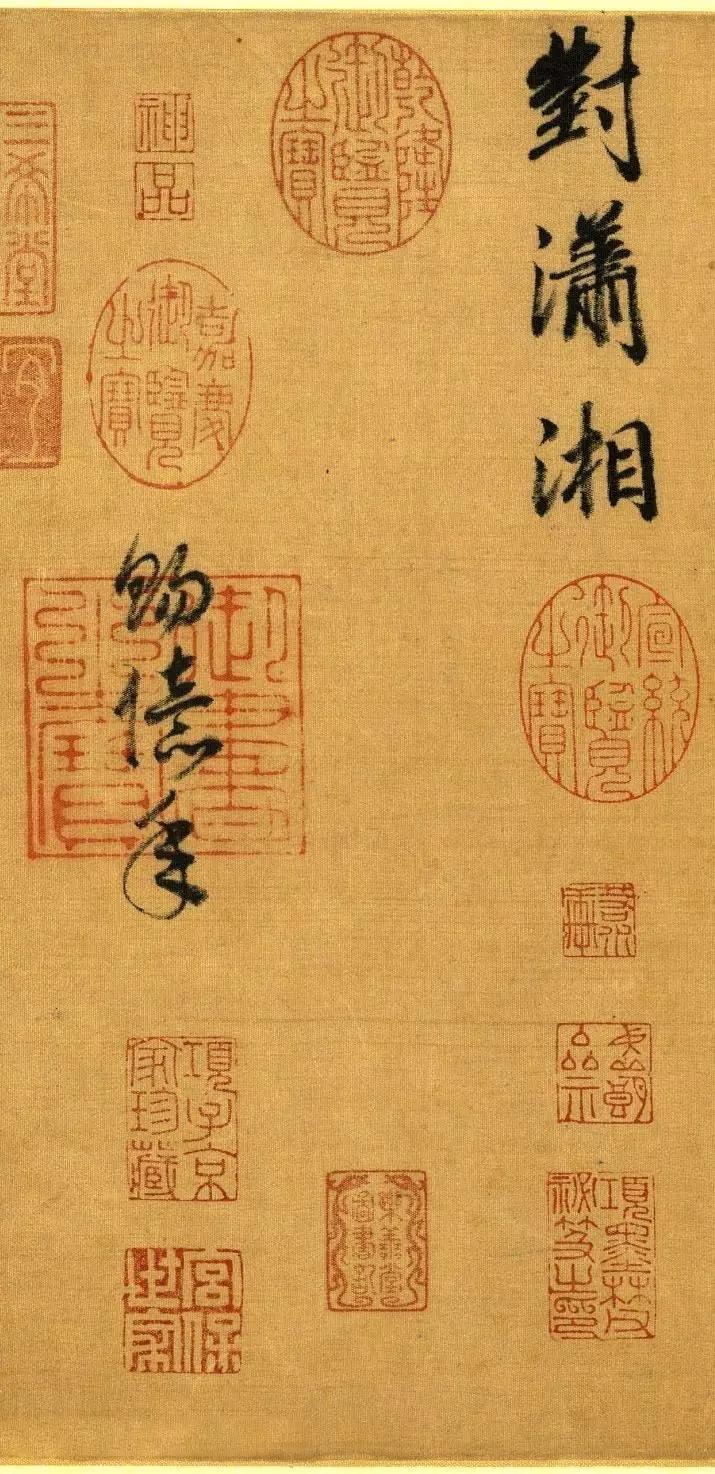 對瀟湘
宣統御覽之寶
項墨林父秘笈之印
乾隆御覽之寶
樂善堂圖書記
賜億年
神品
嘉慶御覽之寶
項子京家珍藏
宮保世家
三希堂